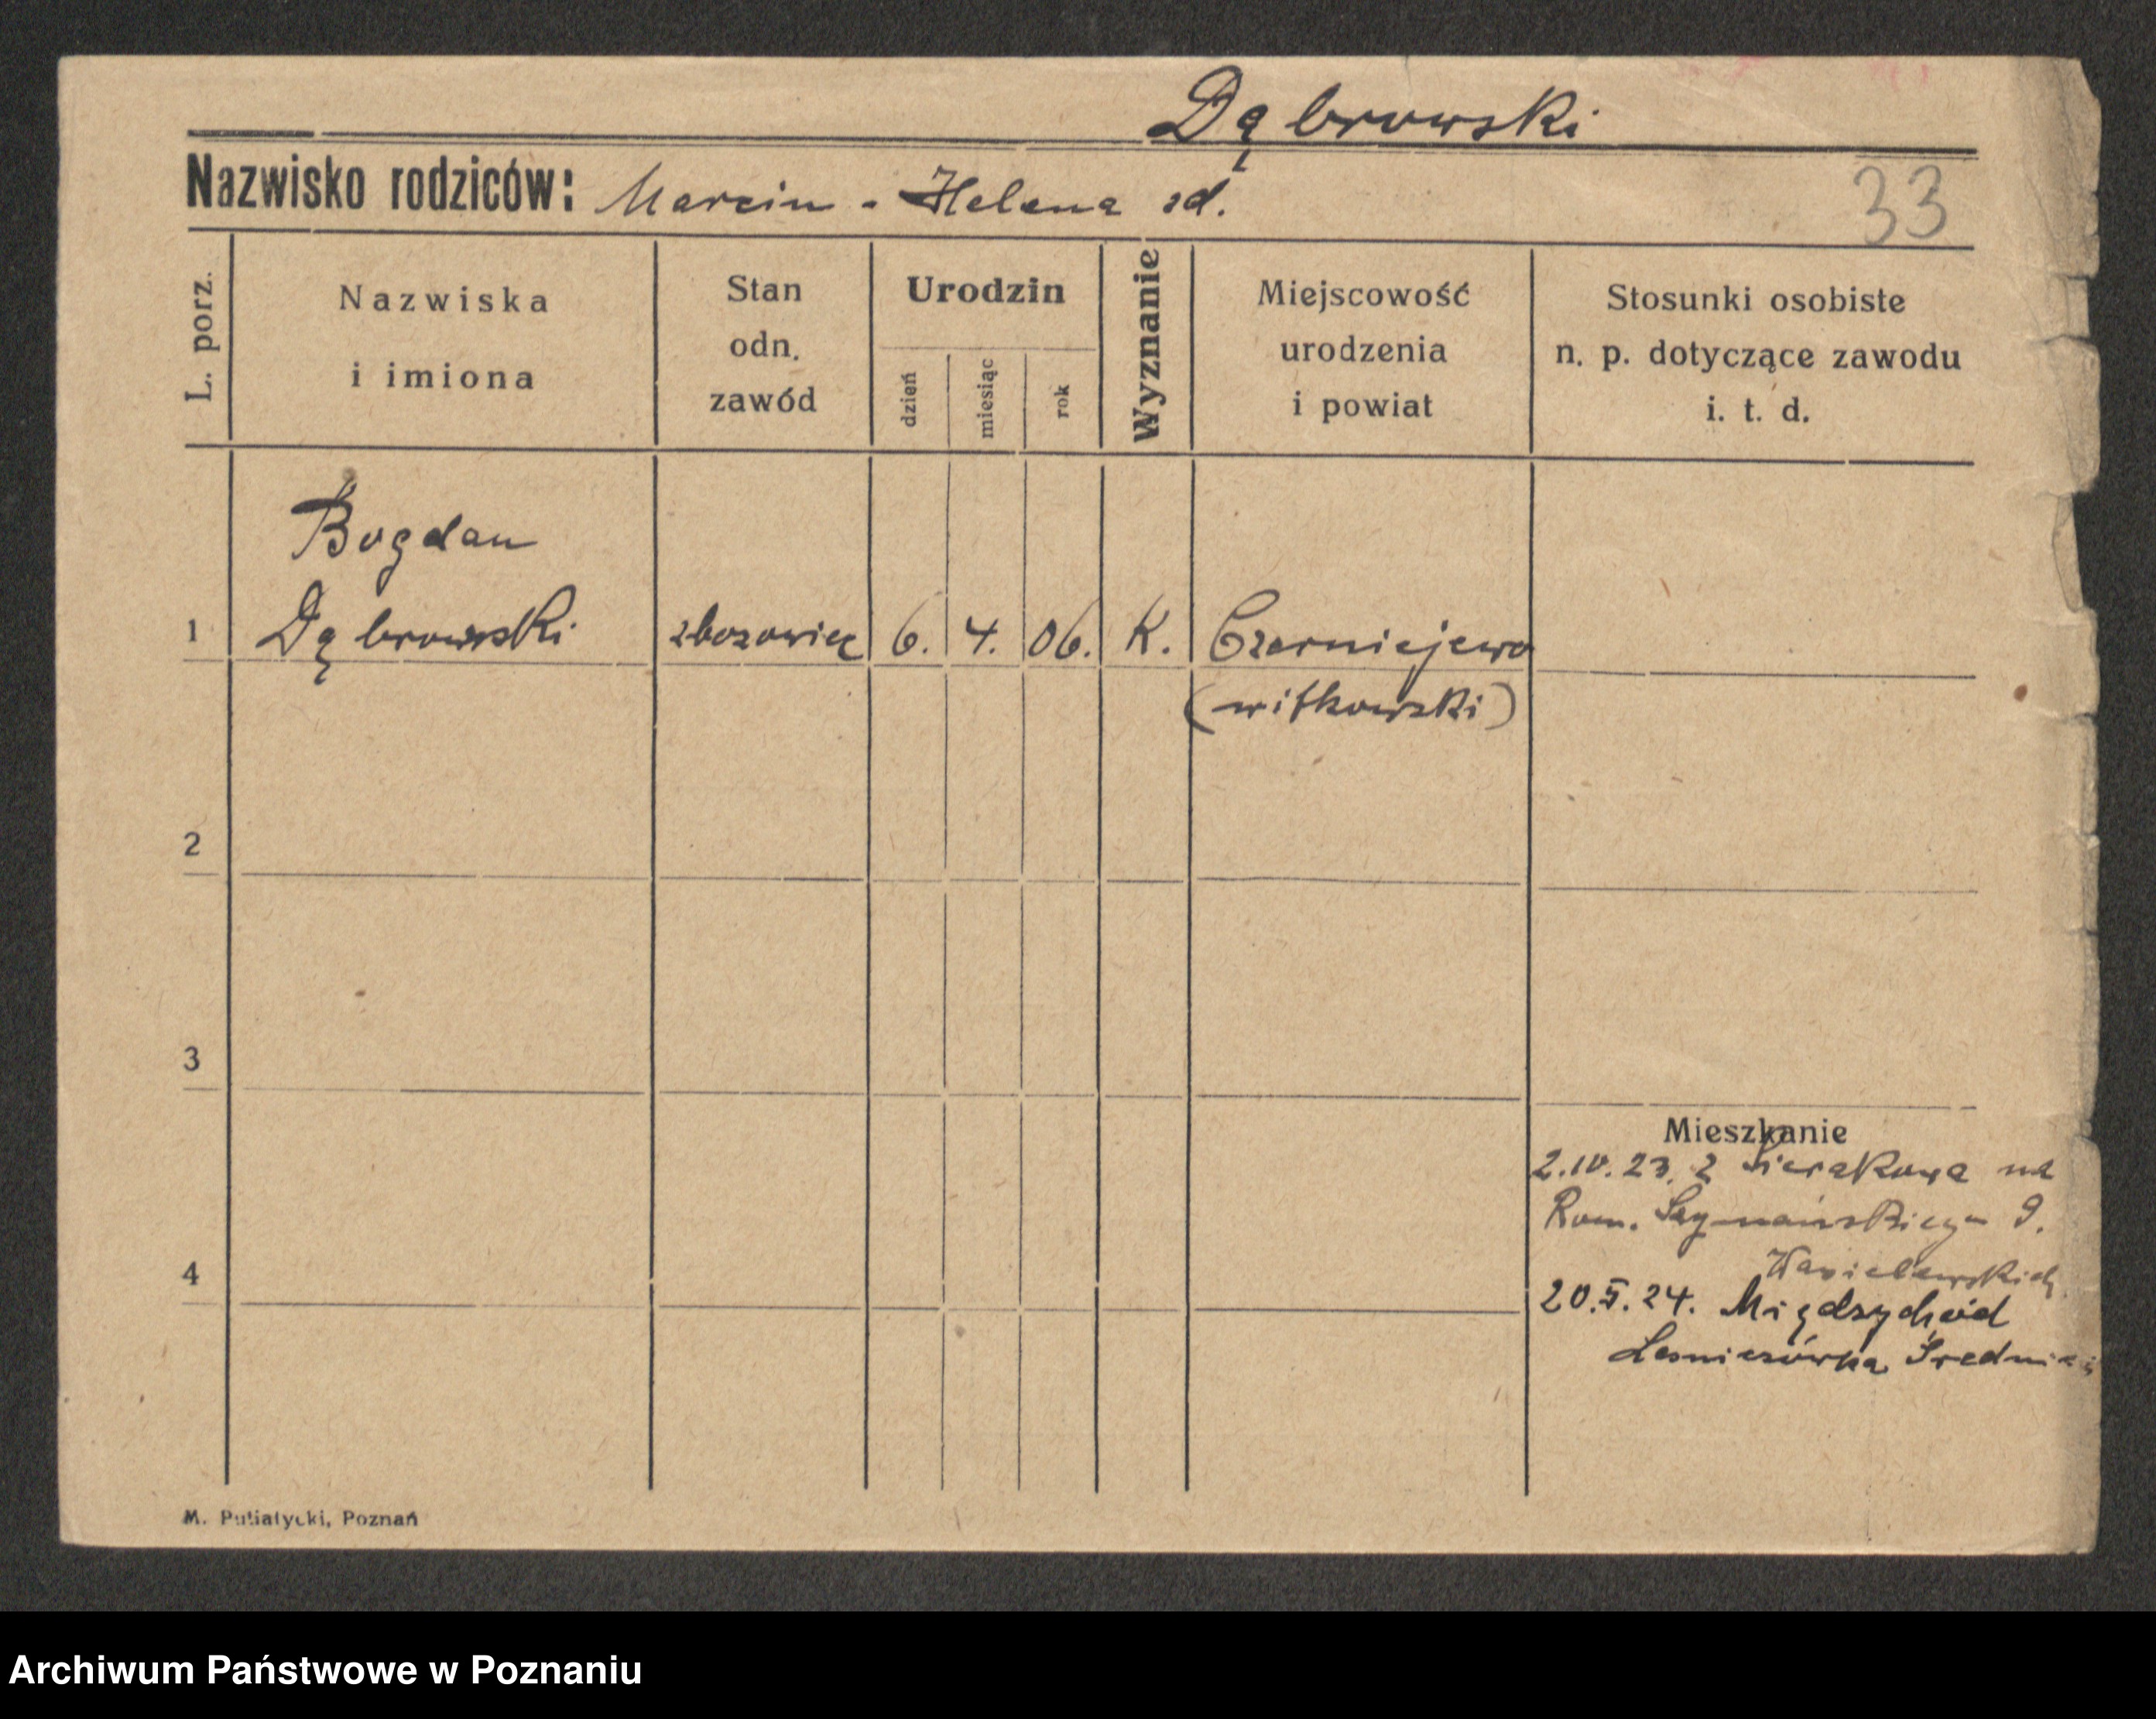 Dąbrowski
Nazwisko rodziców: Marcin - Helena zd.
33
L. porz.
Nazwiska
i imiona
Stan
odn.
zawód
Urodzin
dzień
miesiąc
rok
Wyznanie
Miejscowość
urodzenia
i powiat
Stosunki osobiste
n. p. dotyczące zawodu
i. t. d.
Bogdan
1 Dąbrowski zbozowiec 6. 4. 06. K. Czerniejewo
(witkowski)
2
3
Mieszkanie
2.10.23. z Sierakowa na
Rom. Szymańskiego 9.
4
20.5.24. Międzychód
Lesniczówka
M. Putiatycki, Poznań
Archiwum Państwowe w Poznaniu